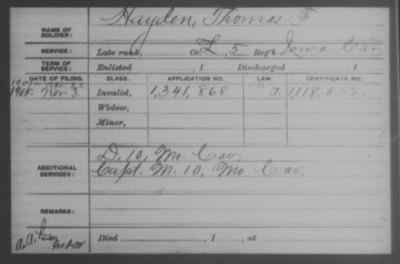 NAME OF SOLDIER: Hayden, Thomas F.
SERVICE: Late rank, Co. L, 5 Reg't Iowa Cav
TERM OF SERVICE: Enlisted , 1 Discharged , 1
DATE OF FILING. CLASS. APPLICATION NO. LAW. CERTIFICATE NO.
1905. Nov 3. Invalid, 1,341,868 J
Widow,
Minor,
ADDITIONAL SERVICES: D. 10, Mo. Cav.
Capt. M. 10, Mo. Cav.
REMARKS:
Died , 1 , at